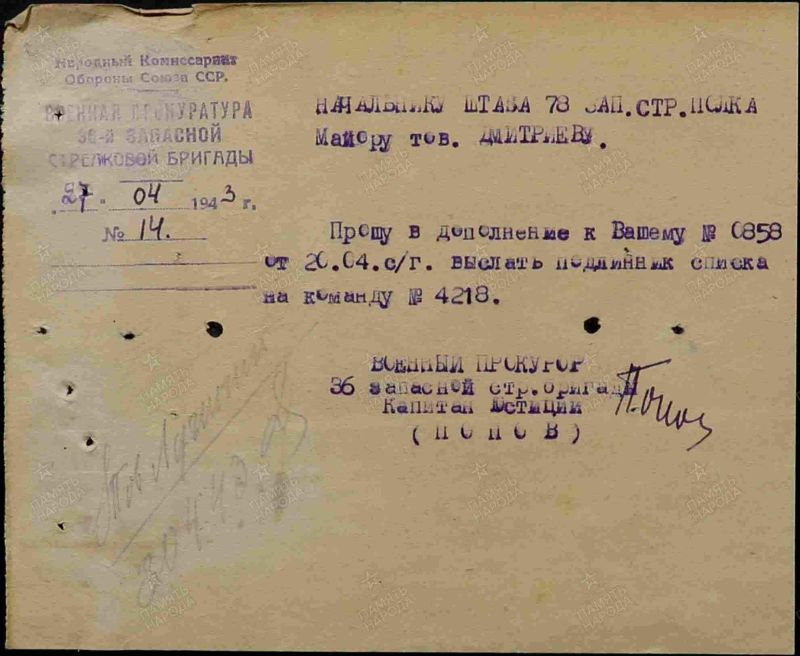 Народный Комиссариат
Обороны Союза ССР.
ВОЕННАЯ ПРОКУРАТУРА
36-й ЗАПАСНОЙ
СТРЕЛКОВОЙ БРИГАДЫ
27 - 04 1943 г.
№ 14.
НАЧАЛЬНИКУ ШТАБА 78 ЗАП.СТР.ПОЛКА
Майору тов. ДМИТРИЕВУ.
Прошу в дополнение к Вашему № 0858
от 20.04.с/г. выслать подлинник списка
на команду № 4218.
ВОЕННЫЙ ПРОКУРОР
36 запасной стр.бригады
Капитан Юстиции
( П О П О В )
Тов
30 4.43
ПАМЯТЬ НАРОДА